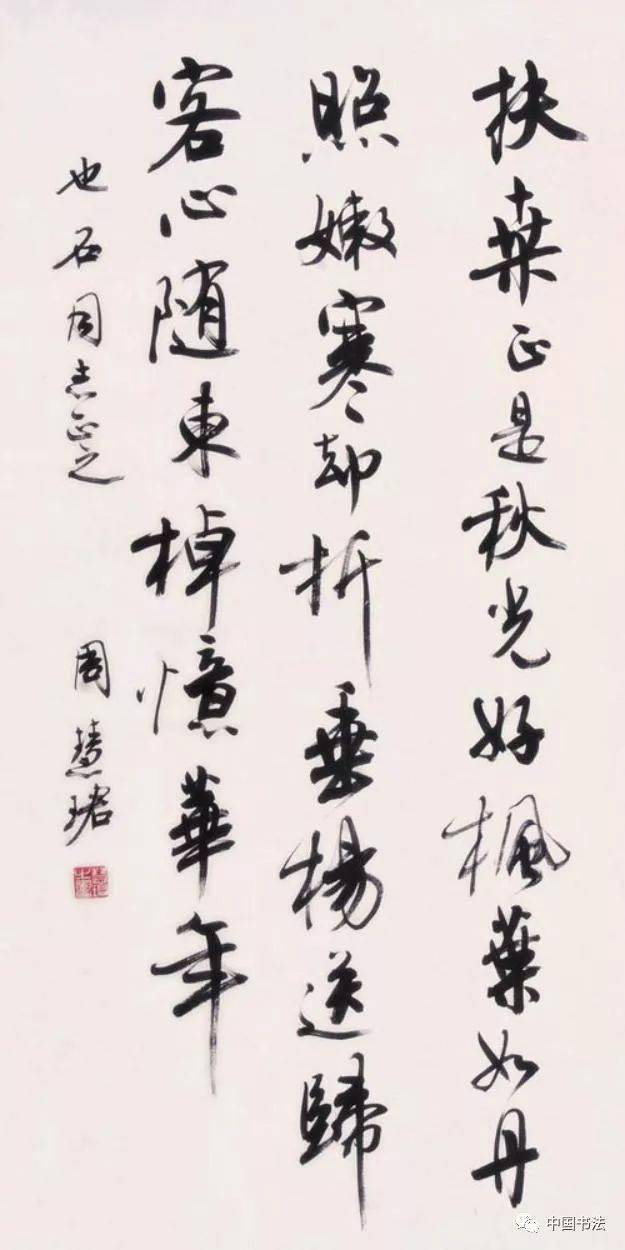 扶桒正是秋光好楓葉如丹
照嫩寒却折垂楊送歸
客心随東棹憶華年
也石同志正之
周慧珺
中国书法